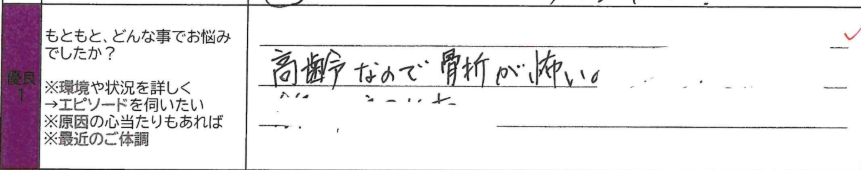 もともと、どんな事でお悩み
でしたか？
※環境や状況を詳しく
→エピソードを伺いたい
※原因の心当たりもあれば
※最近のご体調
優良
1
高齢なので骨折が怖い。